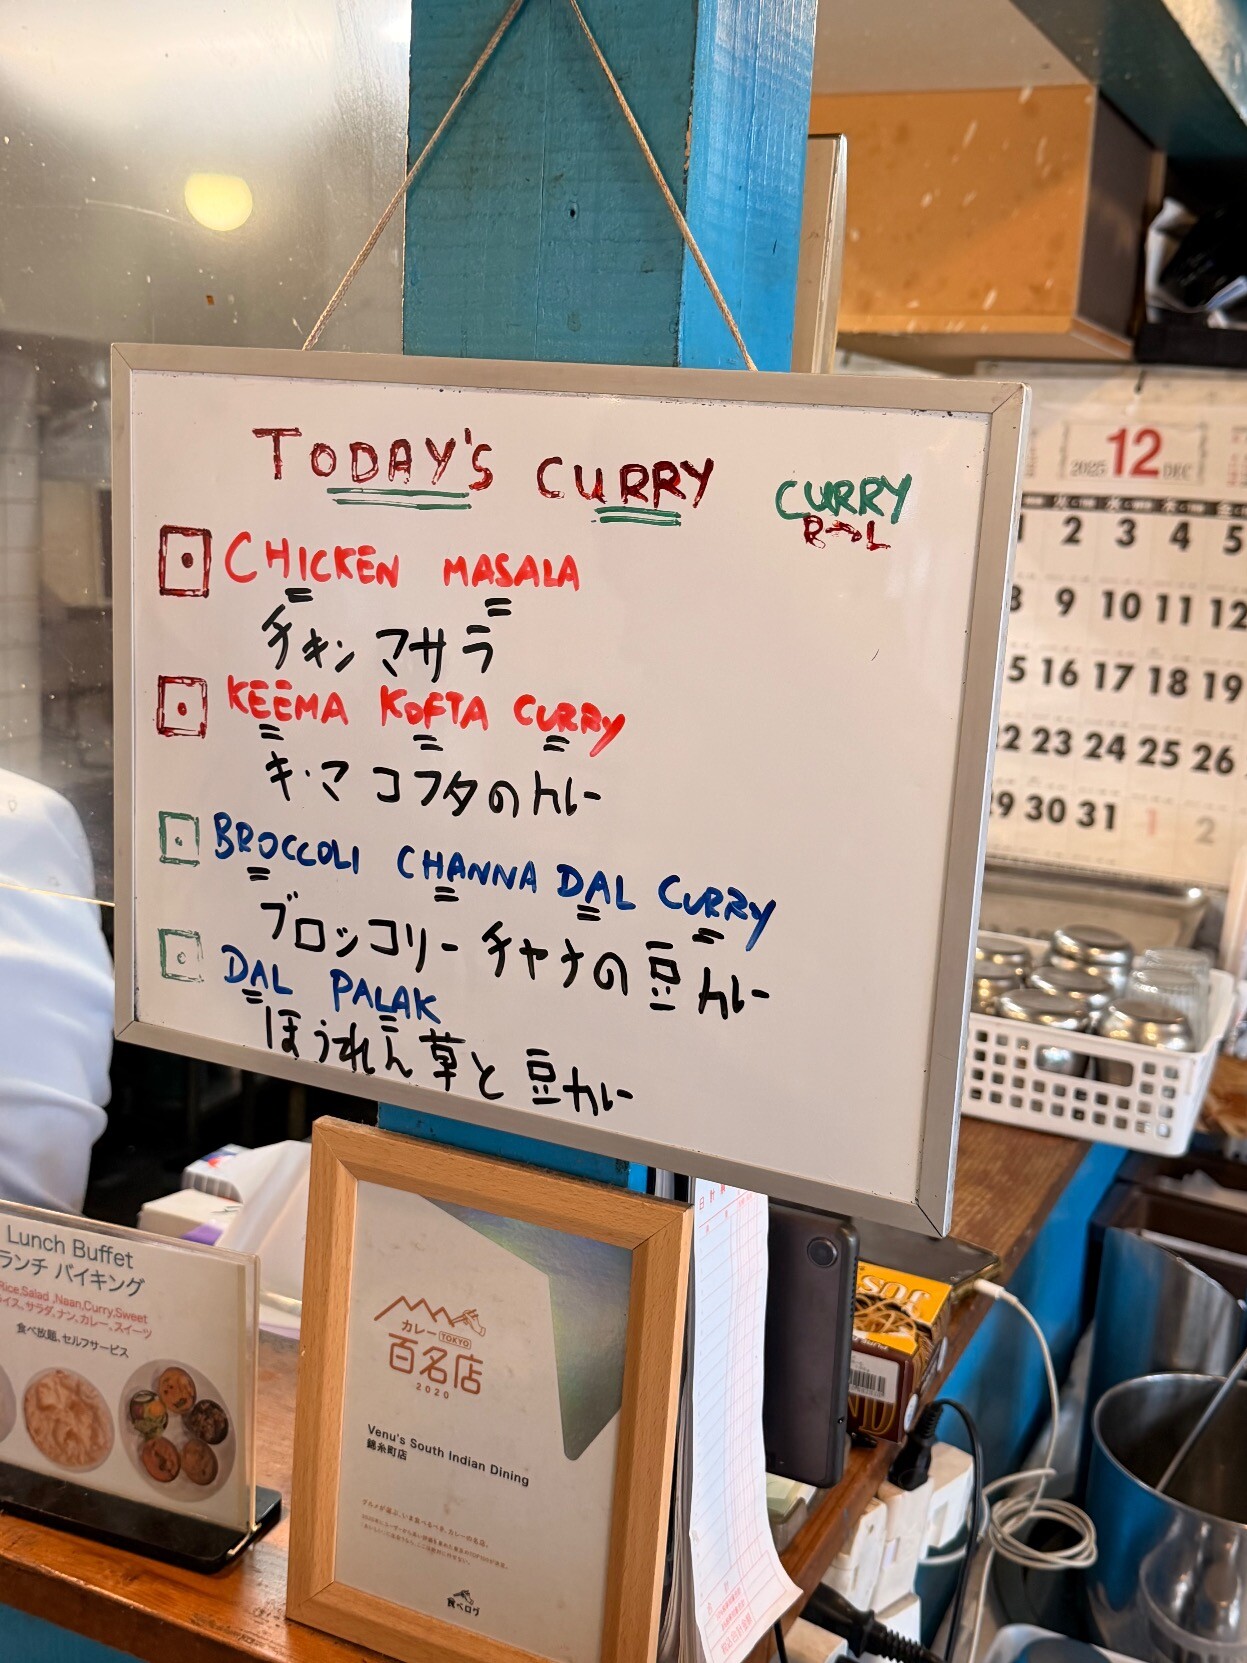 TODAY'S CURRY
CURRY
CHICKEN MASALA
チキン マサラ
KEEMA KOFTA CURRY
キーマ コフタのカレー
BROCCOLI CHANNA DAL CURRY
ブロッコリー チャナの豆カレー
DAL PALAK
ほうれん草と豆カレー
2025 12 DEC
2 3 4 5
9 10 11 12
15 16 17 18 19
22 23 24 25 26
29 30 31 1 2
Lunch Buffet
ランチ バイキング
Rice,Salad ,Naan,Curry,Sweet
ライス、サラダ、ナン、カレー、スイーツ
食べ放題、セルフサービス
カレー TOKYO
百名店
2020
Venu's South Indian Dining
錦糸町店
グルメが選ぶ、いま食べるべき、カレーの名店。
食べログ